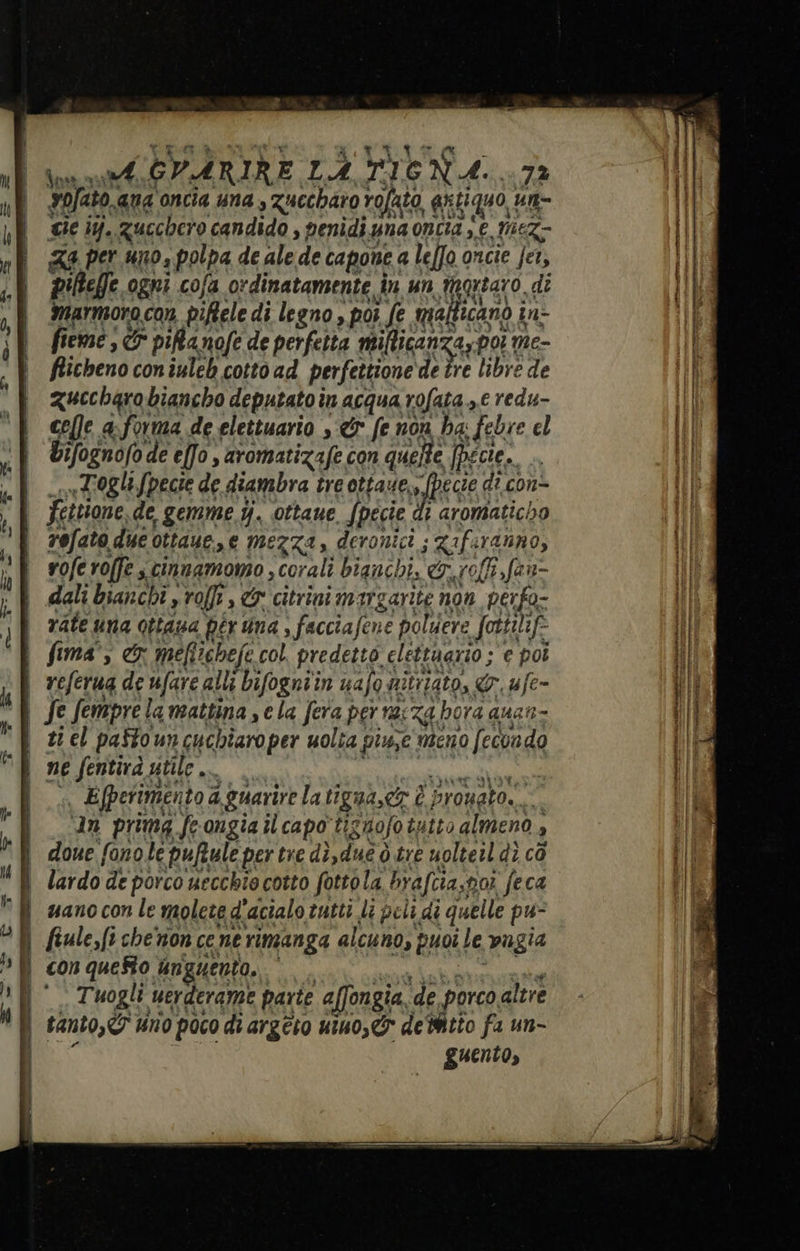 A GVARIRE LA TIGNA. 72
rosato ana oncia una, zuccharo rosato antiquo un-
cie ij. zucchero candido, penidi una oncia, e mez-
za per uno, polpa de ale de capone a lesso oncie sei,
pistesse ogni cosa ordinatamente in un mortaro di
marmoro con pistele di legno, poi se masticano in-
sieme, & pistanose de perfetta misticanza, poi me-
sticheno con iuleb cotto ad perfettione de tre libre de
zuccharo biancho deputato in acqua rosata, e redu-
cesse a forma de elettuario, & se non ha febre el
bisognoso de esso, aromatizase con queste specie.
Togli specie de diambra tre ottaue, specie di con-
fettione de gemme ij. ottaue specie di aromaticho
rosato due ottaue, e mezza, deronici; zafaranno,
rose rosse, cinnamomo, corali bianchi, & rossi, san-
dali bianchi, rossi, & citrini margarite non perfo-
rate una ottaua per una, facciasene poluere sottilis-
sima, & mestichese col predetto elettuario; e poi
reserua de usare alli bisogni in uaso uitriato, & use-
se sempre la mattina, e la sera per mezza hora auan-
ti el pasto un cuchiaro per uolta piu, e meno secondo
ne sentirà utile.
Esperimento a guarire la tigna, & è prouato.
In prima se ongia il capo tignoso tutto almeno,
doue sono le pustule per tre dì, due ò tre uolte il dì cō
lardo de porco uecchio cotto sotto la brascia, poi seca
uano con le molete d'acialo tutti li peli di quelle pu-
stule, si che non ce ne rimanga alcuno, puoi le vngia
con questo unguento.
Tuogli uerderame parte assongia de porco altre
tanto, & uno poco di argēto uiuo, & de mitto fa un-
guento,